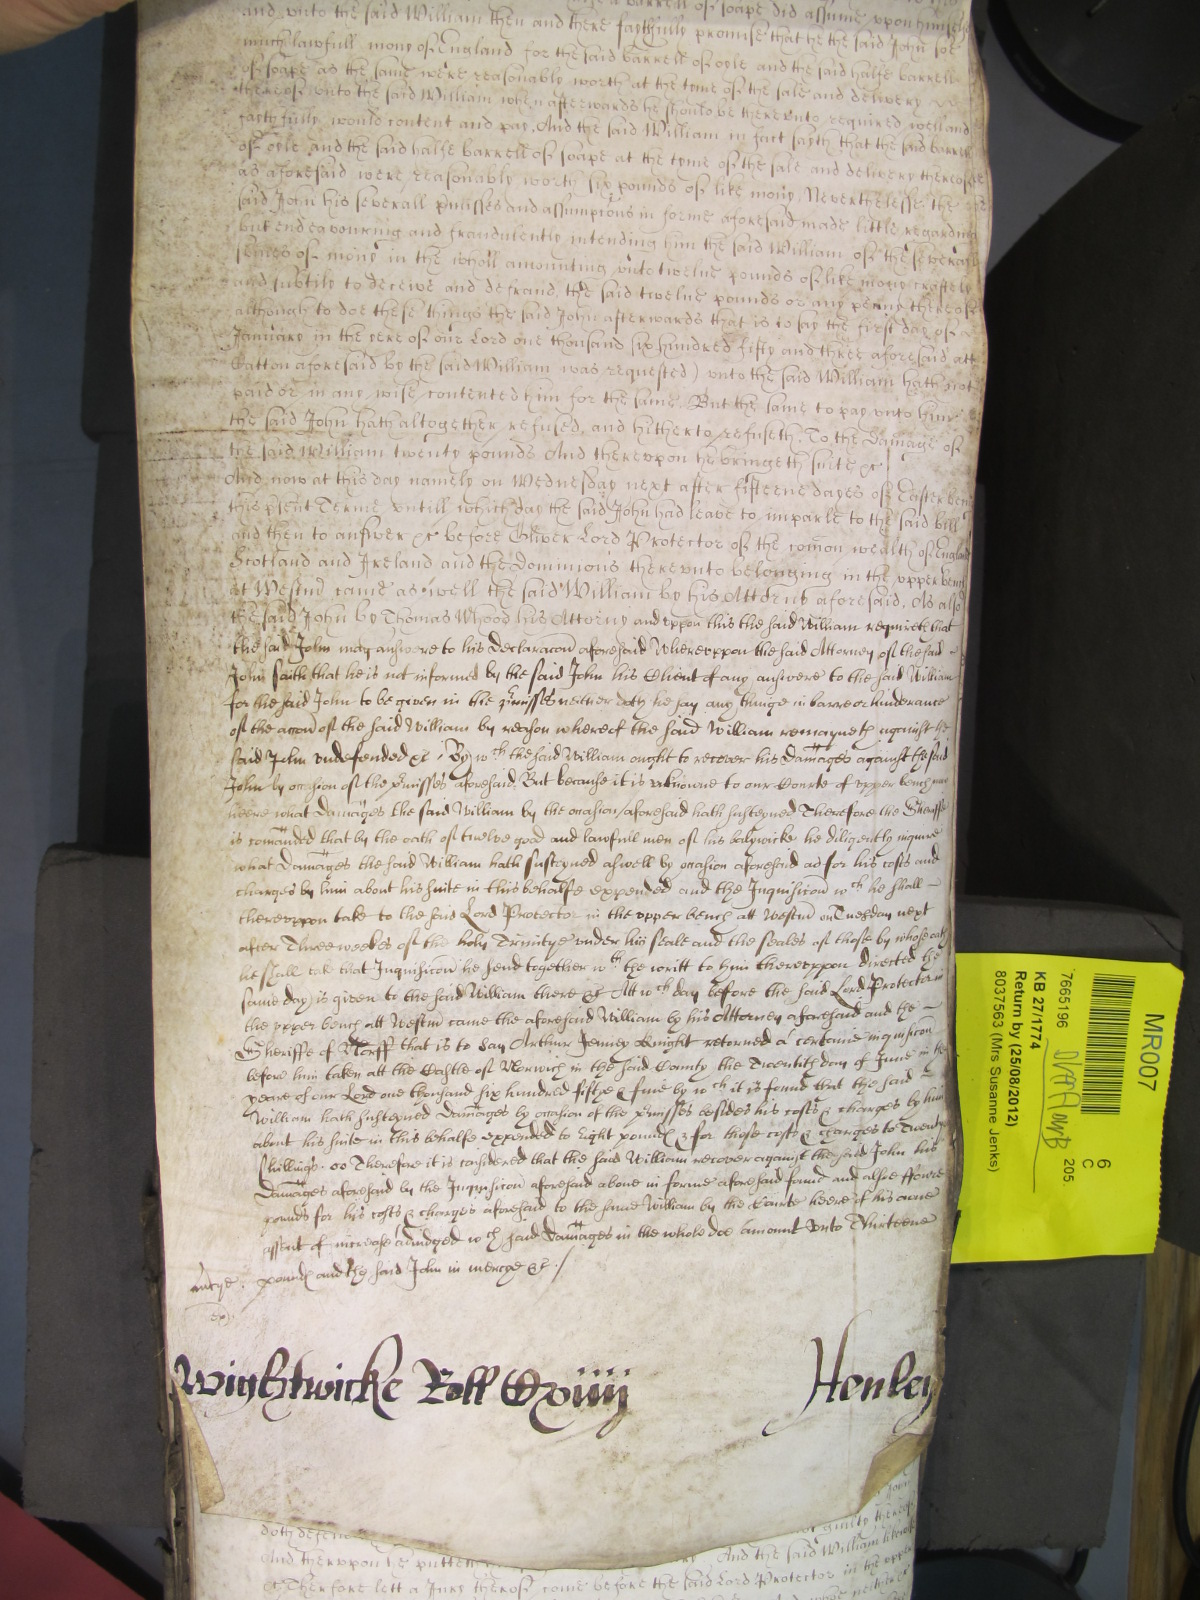 and unto the said William then and there faythfully promise that he the said John soe
much lawfull mony of England for the said barrell of oyle and the said halfe barrell
of soape as the same were reasonably worth at the tyme of the sale and delivery
thereof unto the said William when afterwards he should be therevnto required well and
faythfully would content and pay. And the said William in fact sayth that the said barrell
of oyle and the said halfe barrell of soape at the tyme of the sale and delivery thereof
as aforesaid were reasonably worth six pounds of like mony. Neverthelesse the
said John his severall pmisses and assumpcions in forme aforesaid made little regarding
but endeavouring and fraudulently intending him the said William of the severall
somes of mony in the wholl amounting vnto twelve pounds of like mony craftely
and subtily to deceive and defraud the said twelve pounds or any penny thereof
although to doe these things the said John afterwards that is to say the first day of
January in the yere of our Lord one thousand six hundred fifty and three aforesaid att
Catton aforesaid by the said William was requested) vnto the said William hath not
paid or in any wise contented him for the same. But the same to pay vnto him
the said John hath altogether refused, and hitherto refuseth. To the Damage of
the said William twenty pounds And therevpon he bringeth suite &c
And now at this day namely on Wednesday next after fifteene dayes of Easter
this psent Terme vntill which day the said John had leave to imparle to the said bill
and then to answer &c before Oliver Lord Protector of the comon wealth of England
Scotland and Ireland and the Dominions therevnto belonging in the vpper bench
at Westmr came as well the said William by his Attorny aforesaid. As also
the said John by Thomas Whood his Attorny and vppon this the said William requireth that
the said John may answere to his Declaracon aforesaid Wherevppon the said Attorney of the said
John saith that he is not informed by the said John his Client of any answere to the said William
for the said John to be given in the pmisses neither doth he say any thinge in barre or hinderance
of the accon of the said William by reason whereof the said William remayneth against the
said John vndefended &c. By wch the said William ought to recover his Damages against the said
John by occasion of the pmisses aforesaid. But because it is vnknowne to our Courte of vpper bench
heere what Damages the said William by the occasion aforesaid hath susteyned Therefore the Sheriffe
is comanded that by the oath of twelve good and lawfull men of his balywicke he diligently inquire
what Damages the said William hath susteyned aswell by occasion aforesaid as for his costs and
charges by him about his suite in this behalfe expended and the Inquisicon wch he shall
therevppon take to the said Lord Protector in the vpper bench att Westmr on Tuesday next
after Three weekes of the holy Trinitye vnder his seale and the seales of those by whose oath
he shall take that Inquisicon he send together wth the writt to him therevppon directed the
same day is given to the said William there &c Att wch day before the said Lord Protector in
the vpper bench att Westmr came the aforesaid William by his Attorney aforesaid and the
Sheriffe of Norff that is to say Arthur Jenney Knight retorned a certaine inquisicon
before him taken att the Castle of Norwich in the said County the Twentith day of June in the
yeare of our Lord one thousand six hundred fiftye & five by wch it is found that the said
William hath susteyned Damages by occasion of the pmisses besides his costs & charges by him
about his suite in this behalfe expended to eight pounds & for those costs & charges to Twenty
shillings. Therefore it is considered that the said William recover against the said John his
Damages aforesaid by the Inquisicon aforesaid above in forme aforesaid found and alsoe ffowre
pounds for his costs & charges aforesaid to the same William by the Courte heere of his owne
assent of increase adiudged wch said Damages in the whole doe amount vnto Thirteene
pounds and the said John in mercye &c./
Wightwicke Roll Cxiiij Henley
And therevpon he putteth And the said William
Therfore lett a Jury therof come before the said Lord Protector in the vpper
MR007
7665196
6
C
205.
KB 27/1774
Return by (25/08/2012)
8037563 (Mrs Susanne Jenks)